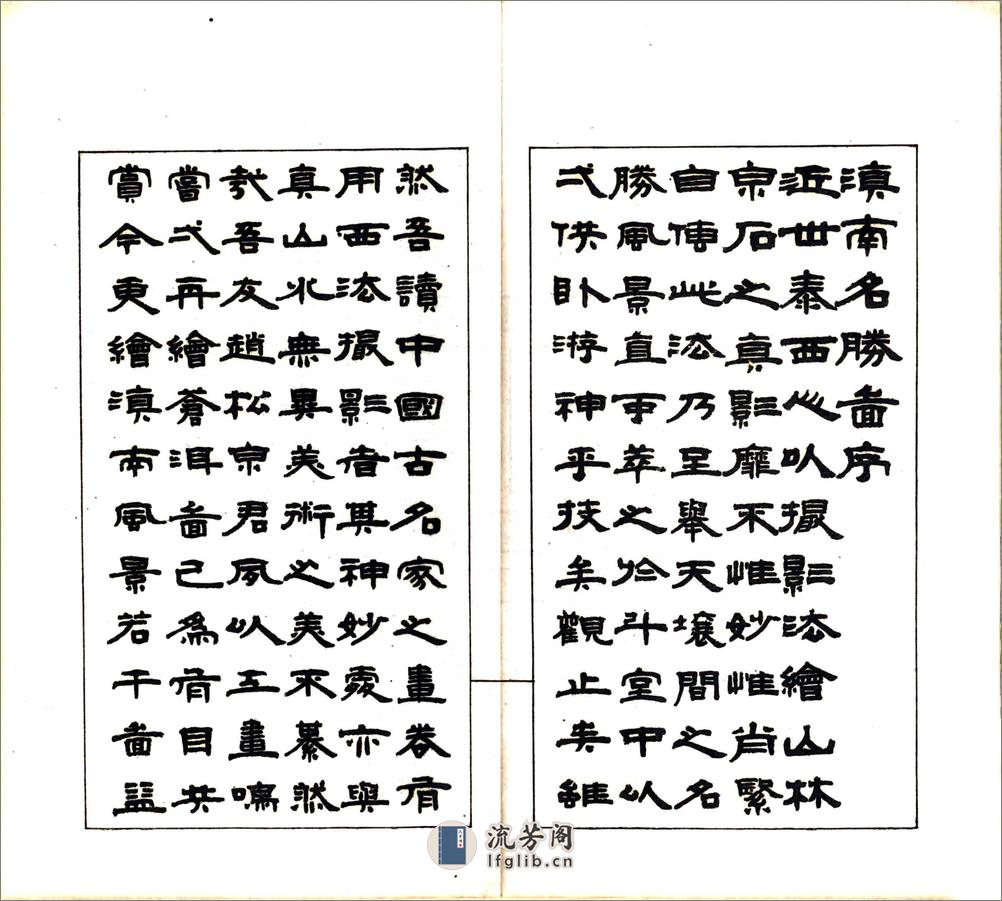 滇南名勝啚序
近世泰西心以撮影法繪山林
泉石之真影靡不惟妙惟肖繫
自傳此法乃至舉天壤間之名
勝風景直可萃之於斗室中以
弌供臥游神乎技矣觀止矣雖
然吾讀中國古名家之畫卷有
用西法撮影者其神妙處亦與
真山水無異美術之美不綦然
哉吾友趙松泉君夙以工畫鳴
嘗弌再繪蒼洱啚已為有目共
賞今更繪滇南風景若干啚益
流芳阁
lfglib.cn